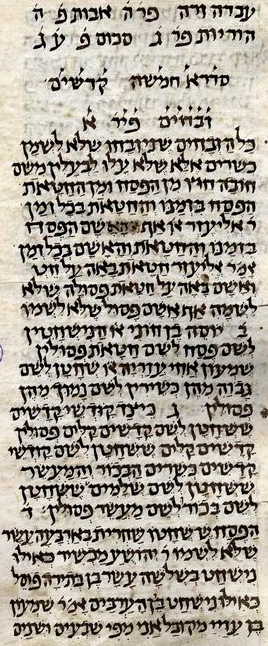 עבודה זרה פר ה אבות פ ה
הוריות פר ג סכום פ ע ג
סדרא חמישה קדשים
זבחים פיר א
כל הזבחים שניזבחו שלא לשמן
כשרים אלא שלא עלו לבעלין משם
חובה חוץ מן הפסח ומן החטאת
הפסח בזמנו והחטאת בכל זמן
ר אליעזר או אף האשם הפסח
בזמנו והחטאת והאשם בכל זמן
אמר ר אליעזר חטאת באה על חטו
ואשם בא על חטאת פסולה שלא
לשמה אף אשם פסול שלא לשמו
ב יוסה בן חוני או הנישחטין
לשם פסח לשם חטאת פסולין
שמעון אחי עזריה או שחטן לשם
גבוה מהן כשירין לשם נמוך מהן
פסולין ג כיצד קודשי קדשים
ששחטן לשם קדשים קלים פסולין
קדשים קלים ששחטן לשם קודשי
קדשים כשרים הבכור והמעשר
ששחטן לשם שלמים ששחטן
לשם בכור לשם מעשר פסולין ד
הפסח ששחטו שחרית בארבעה עשר
שלא לשמו ר יהושע מכשיר כאילו
נישחט בשלשה עשר בן בתירה פוסל
כאילו נישחט בין הערבים אמ שמעון
בן עזיי מקובל אני מפי שבעים ושנים